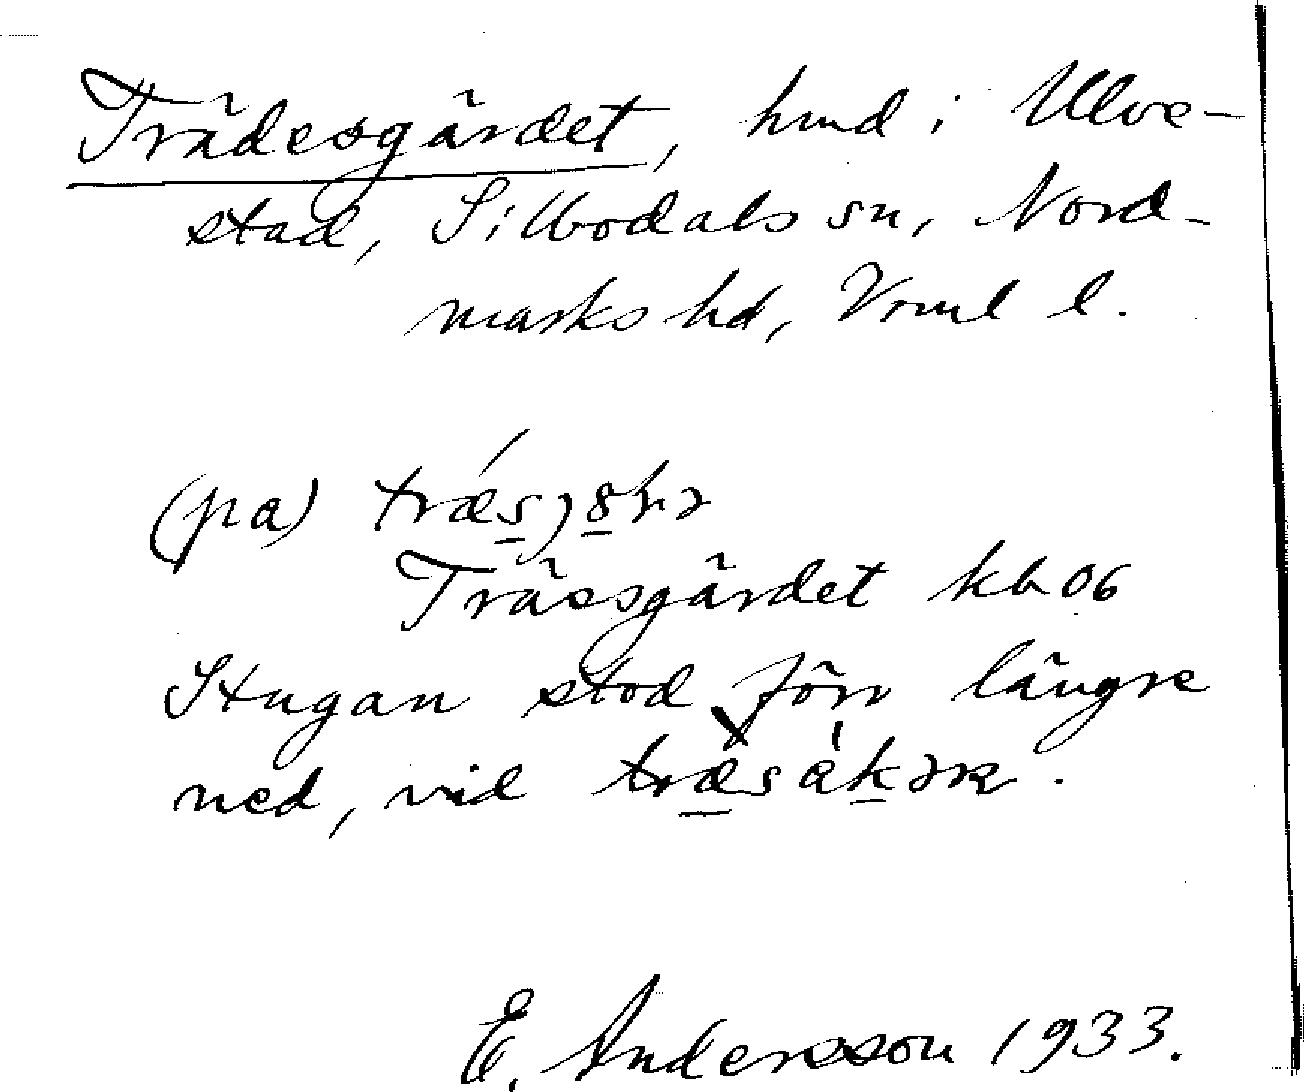 Trädesgärdet, hmd i Ulve-
stad, Sillbodals sn, Nord-
marks hd, Vrml l.
(pa)
Träesgärdet kb 06
Stugan stod förr längre
ned, vid
E. Andersson 1933.